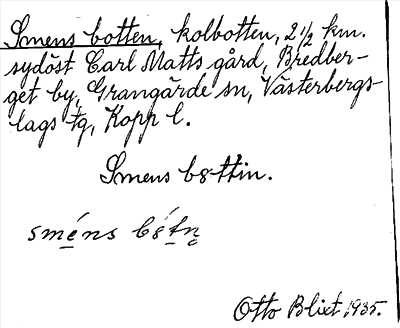 Smens botten, kolbotten, 2 1/2 km.
sydöst Carl Matts gård, Bredber-
get by, Grangärde sn, Västerbergs-
lags tg, Kopp l.
Smens bȣttin.
sméns
Otto Blixt 1935.